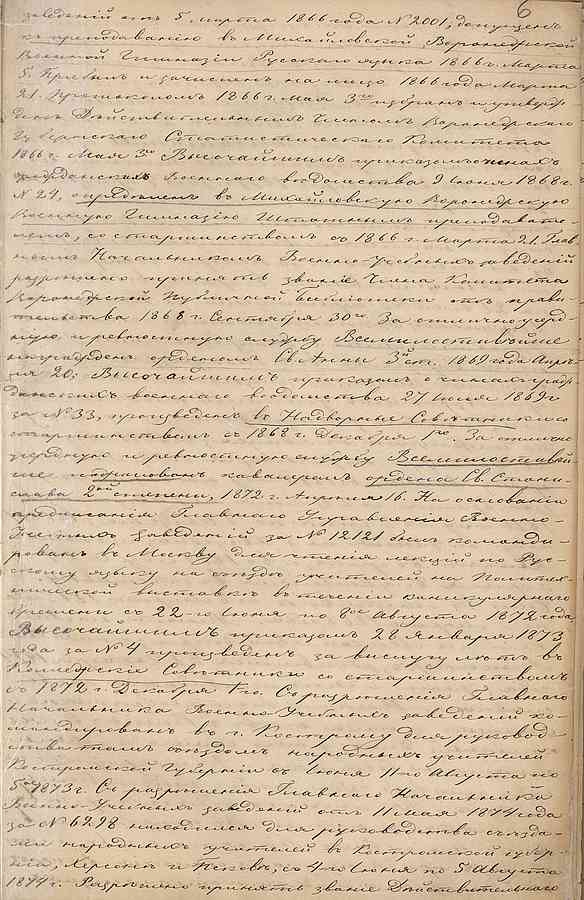 6
заведеній отъ 5 марта 1866 года № 2001, допущенъ
къ преподаванію въ Михайловской Воронежской
Военной Гимназіи Русскаго языка 1866 г. Марта
5. Прибылъ и зачисленъ на лицо 1866 года Марта
21. Протоколомъ 1866 г. мая 3го избранъ и утверж
денъ Дѣйствительнымъ Членомъ Воронежскаго
Губернскаго Статистическаго Комитета
1866 г. Мая 3го Высочайшимъ приказомъ о чинахъ
гражданскихъ Военнаго вѣдомства 9 Іюня 1868 г.
№ 24, опредѣленъ въ Михайловскую Воронежскую
Военную Гимназію Штатнымъ преподавате
лемъ, со старшинствомъ съ 1866 г. Марта 21. Глав
нымъ Начальникомъ Военно-Учебныхъ заведеній
разрѣшено принять званіе Члена Комитета
Воронежской Публичной Библіотеки отъ прави-
тельства 1868 г. Сентября 30го. За отлично усерд
ную и ревностную службу Всемилостивѣйше
награжденъ орденомъ Св. Анны 3й ст. 1869 года Апрѣ
ля 20; Высочайшимъ приказомъ о чинахъ граж
данскихъ военнаго вѣдомства 27 Іюля 1869 г
за № 33, произведенъ въ Надворные Совѣтники со
старшинствомъ съ 1868 г. Декабря 1го. За отлично
усердную и ревностную службу Всемилостивѣй
ше пожалованъ кавалеромъ ордена Св. Стани-
слава 2ой степени, 1872 г. Апрѣля 16. На основаніи
предписанія Главнаго Управленія Военно-
Учебныхъ заведеній за № 12121 былъ команди-
рованъ въ Москву для чтенія лекцій по Рус-
скому языку на съѣздѣ учителей на Политех-
нической выставкѣ въ теченіи каникулярнаго
времени съ 22-го Іюня по 8ое Августа 1872 года
Высочайшимъ приказомъ 28 Января 1873
года за № 4 произведенъ за выслугу лѣтъ въ
Коллежскіе Совѣтники со старшинствомъ
съ 1872 г. Декабря 1го. Съ разрѣшенія Главнаго
Начальника Военно-Учебныхъ заведеній ко-
мандированъ въ г. Кострому для руковод-
ства тамъ съѣздомъ народныхъ учителей
Костромской Губерніи съ Іюня 11-го Августа по
5ое 1873 г. Съ разрѣшенія Главнаго Начальника
Военно-Учебныхъ заведеній отъ 11 мая 1874 года
за № 6298 находился для руководства съѣзда-
ми народныхъ учителей въ Костромской губер-
ніи, Херсонѣ и Псковѣ, съ 4-го Іюня по 5 Августа
1874 г. Разрѣшено принять званіе Дѣйствительнаго